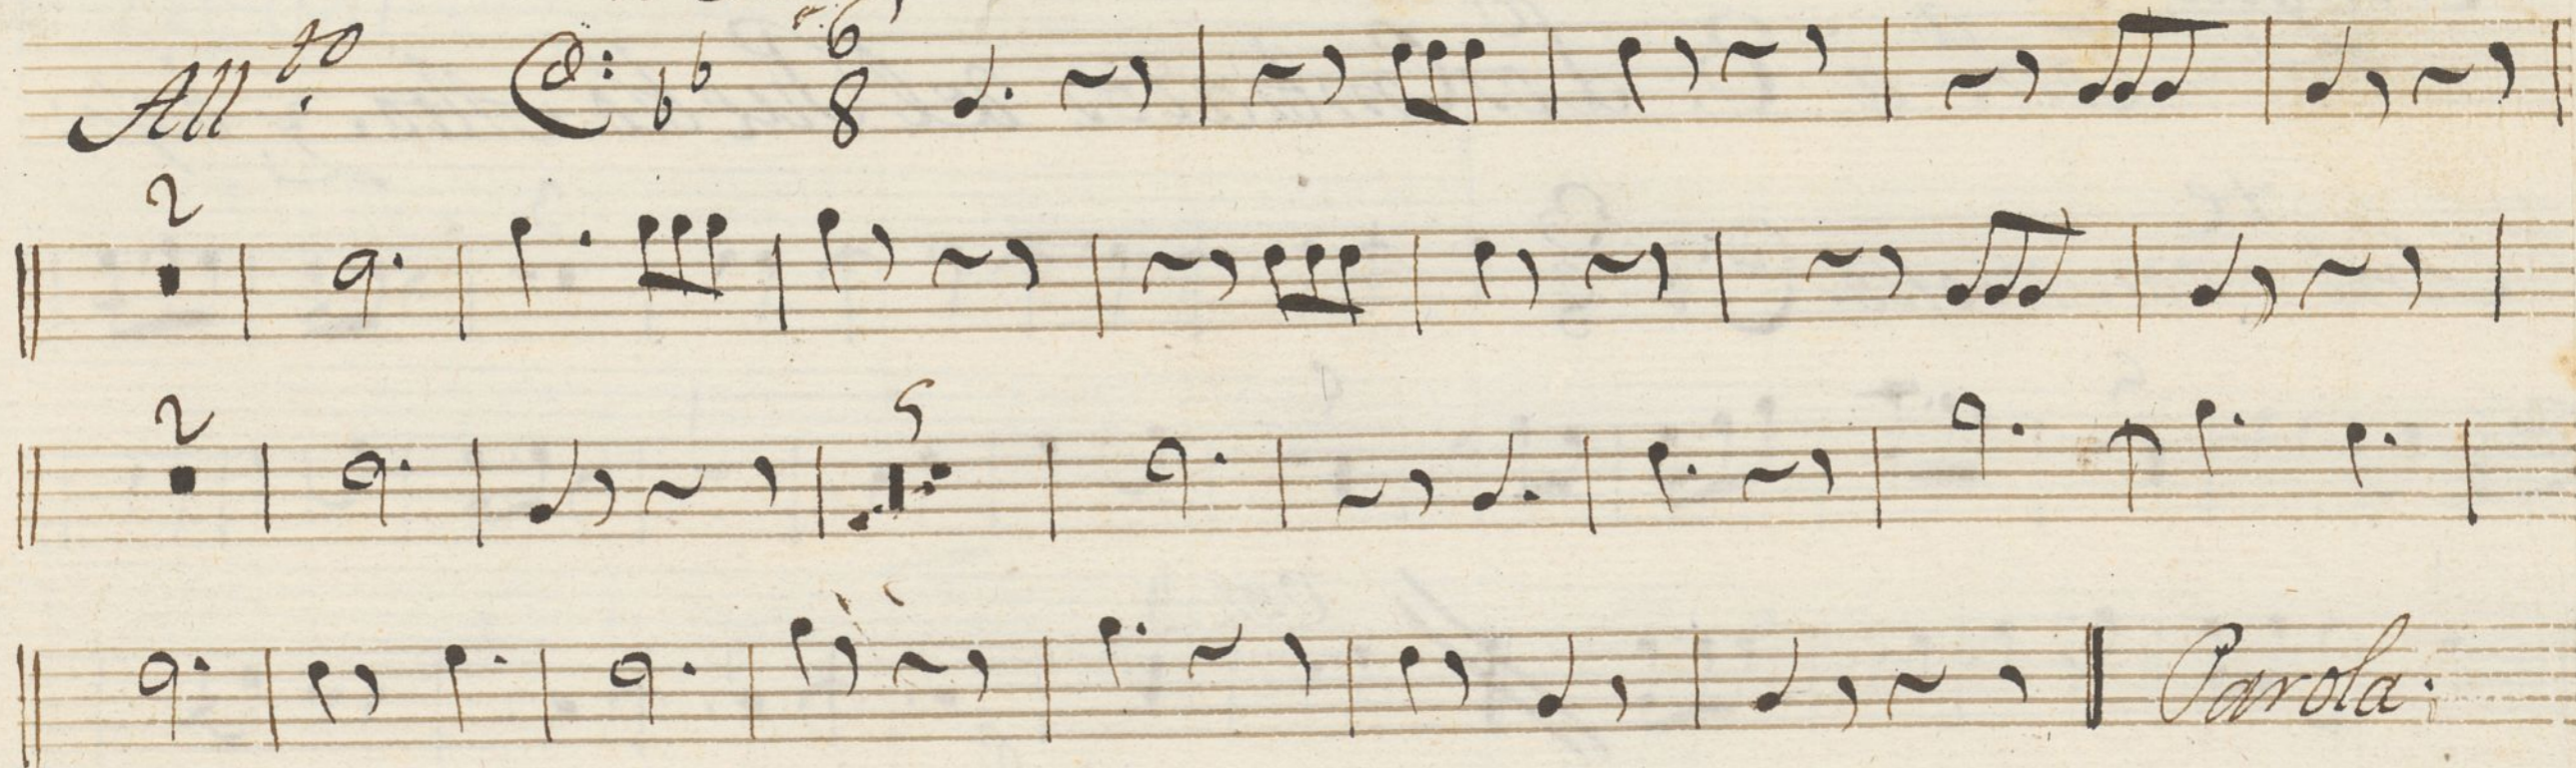 All.to 6
8
2
2 5
Parola.